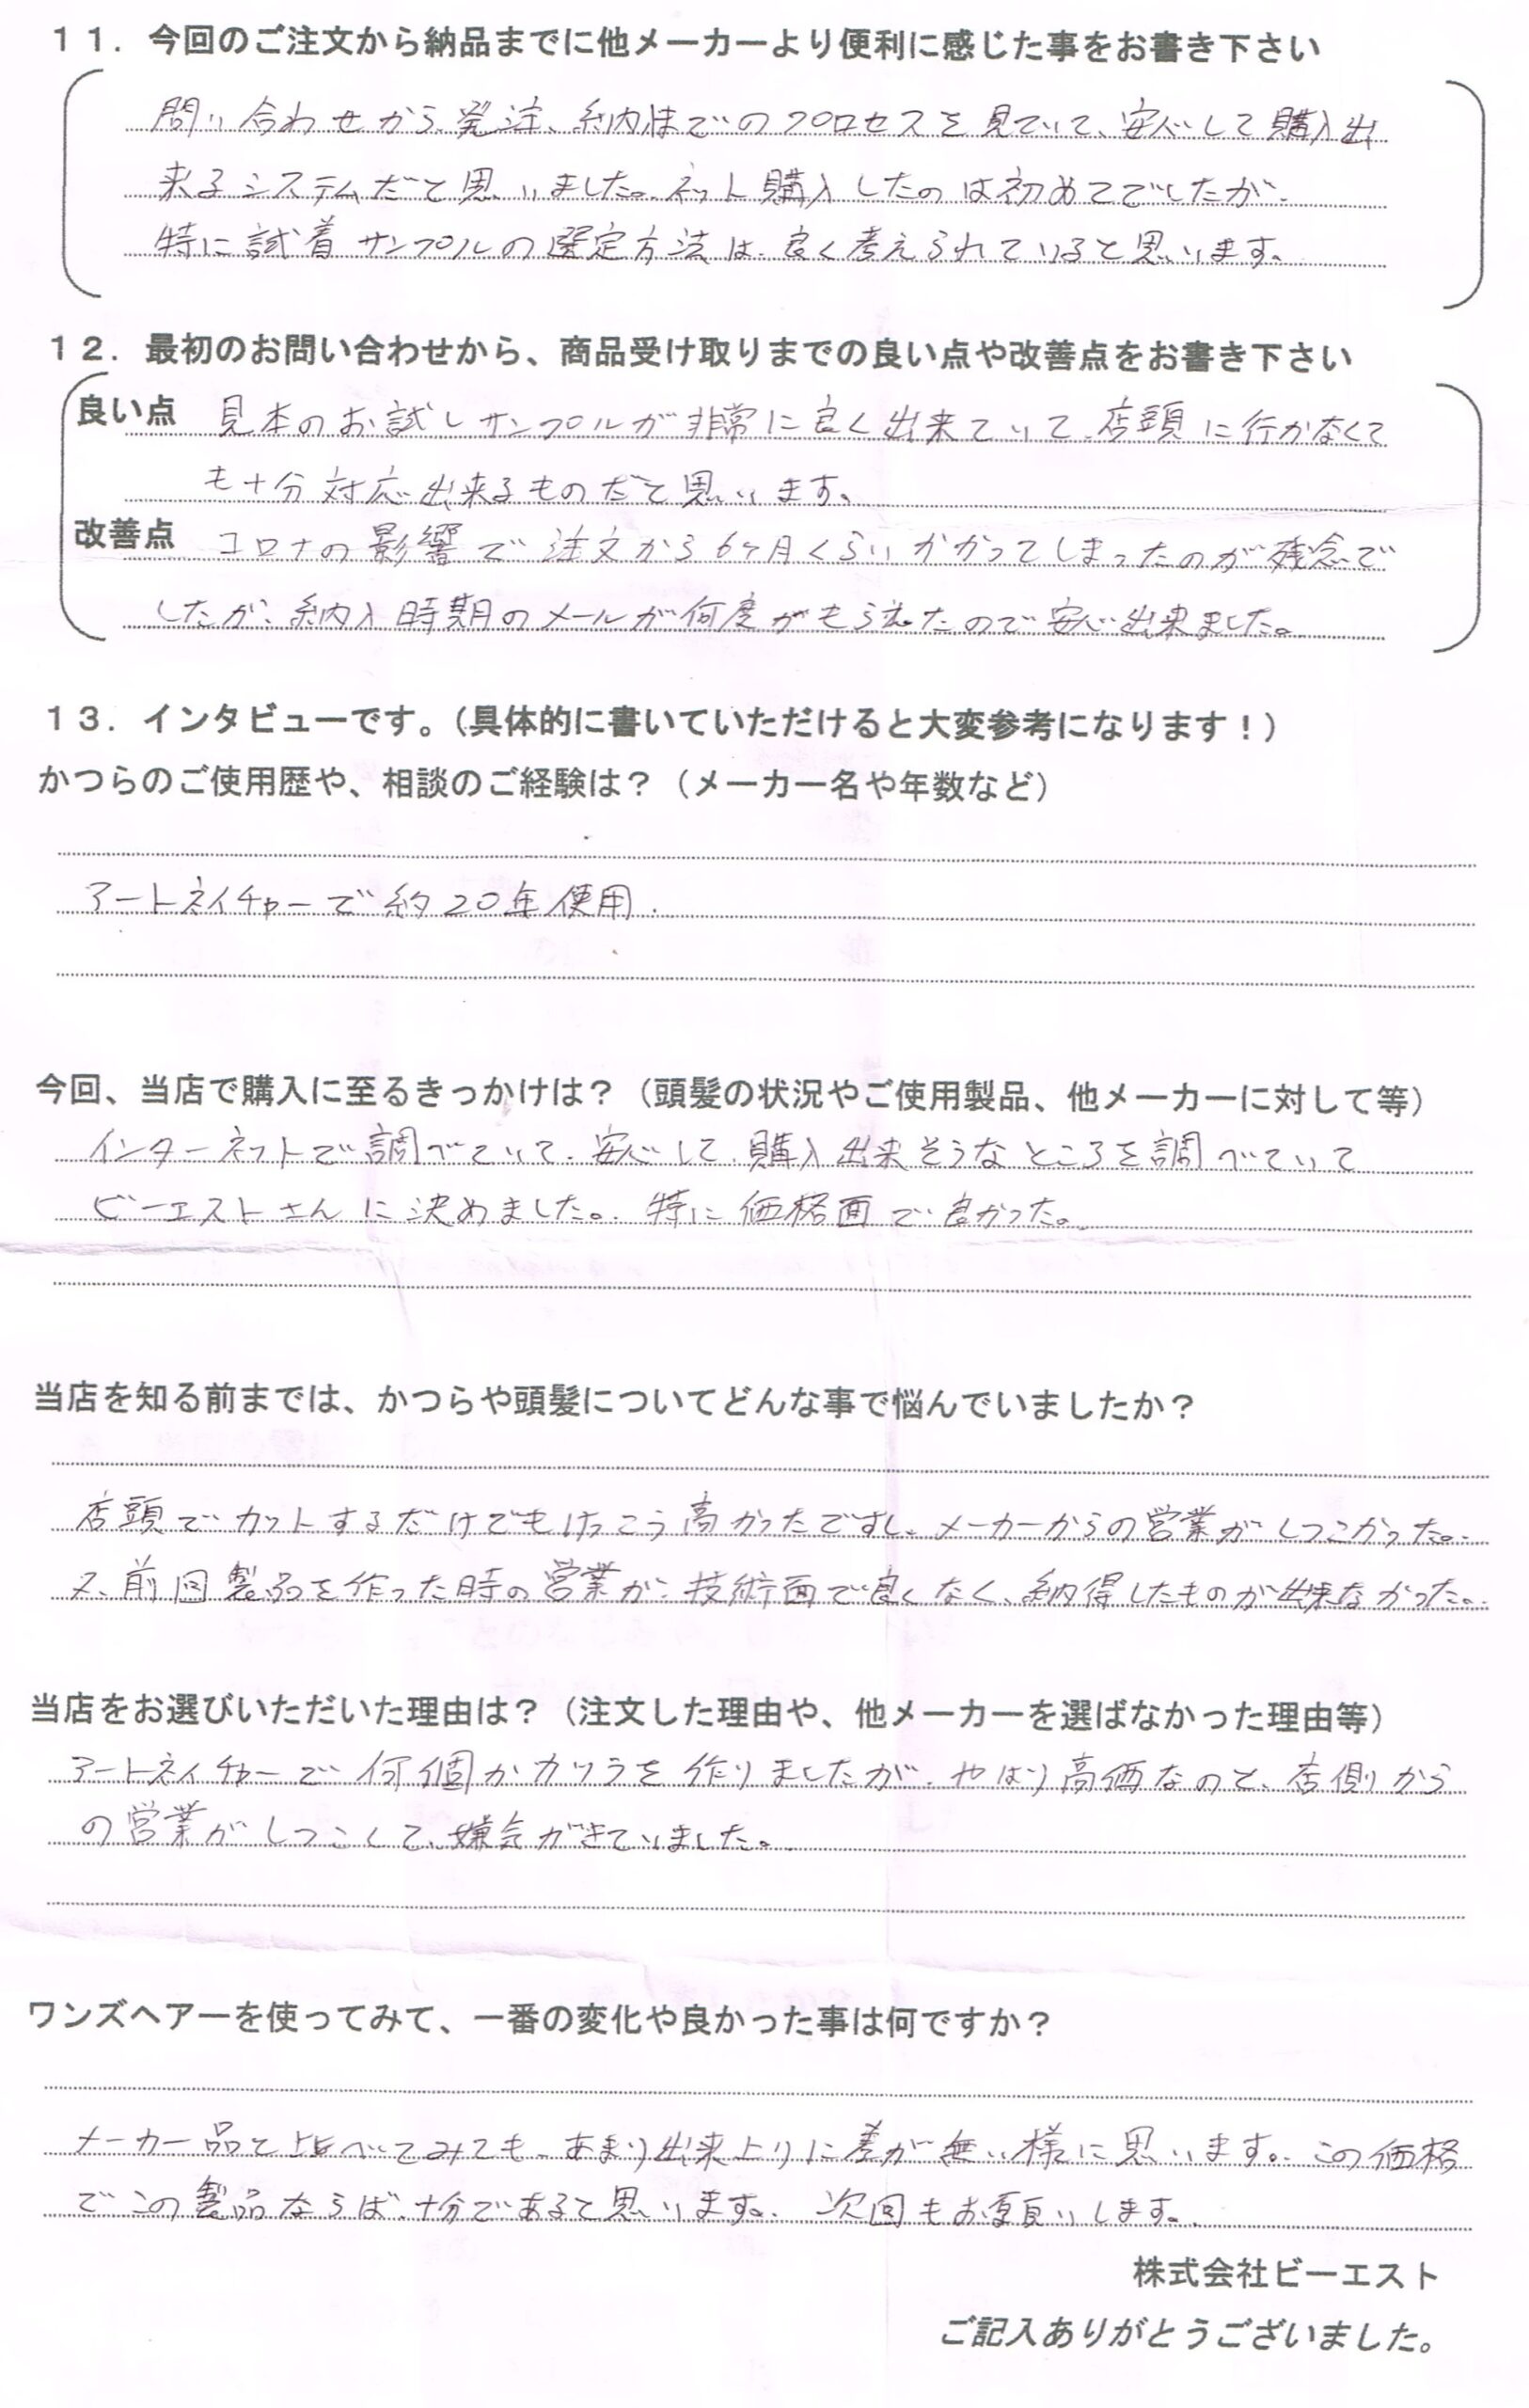 11．今回のご注文から納品までに他メーカーより便利に感じた事をお書き下さい
問い合わせから、発注、納付までのプロセスを見ていて、安心して購入出
来るシステムだと思いました。ネット購入したのは初めてでしたが、
特に試着サンプルの選定方法は、良く考えられていると思います。
12．最初のお問い合わせから、商品受け取りまでの良い点や改善点をお書き下さい
良い点 見本のお試しサンプルが非常に良く出来ていて、店頭に行かなくて
も十分対応出来るものだと思います。
改善点 コロナの影響で注文から6ヶ月くらいかかってしまったのが残念で
したが、納入時期のメールが何度がもらえたので安心出来ました。
13．インタビューです。（具体的に書いていただけると大変参考になります！）
かつらのご使用歴や、相談のご経験は？（メーカー名や年数など）
アートネイチャーで約20年使用．
今回、当店で購入に至るきっかけは？（頭髪の状況やご使用製品、他メーカーに対して等）
インターネットで調べていて、安心して、購入出来そうなところを調べていて
ビーエストさんに決めました。特に価格面で良かった。
当店を知る前までは、かつらや頭髪についてどんな事で悩んでいましたか？
店頭でカットするだけでもけっこう高かったですし、メーカーからの営業がしつこかった。
又、前回製品を作った時の営業が、技術面で良くなく、納得したものが出来なかった。
当店をお選びいただいた理由は？（注文した理由や、他メーカーを選ばなかった理由等）
アートネイチャーで何個かカツラを作りましたが、やはり高価なのと、店側から
の営業がしつこくて、嫌気がさていました。
ワンズヘアーを使ってみて、一番の変化や良かった事は何ですか？
メーカー品と比べてみても、あまり出来上りに差が無い様に思います。この価格
でこの製品ならば、十分であると思います。次回もお願いします。
株式会社ビーエスト
ご記入ありがとうございました。